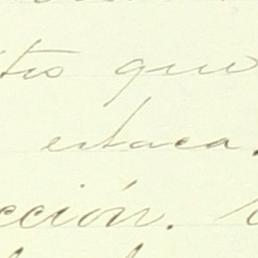 tro que
estaca.
cción.